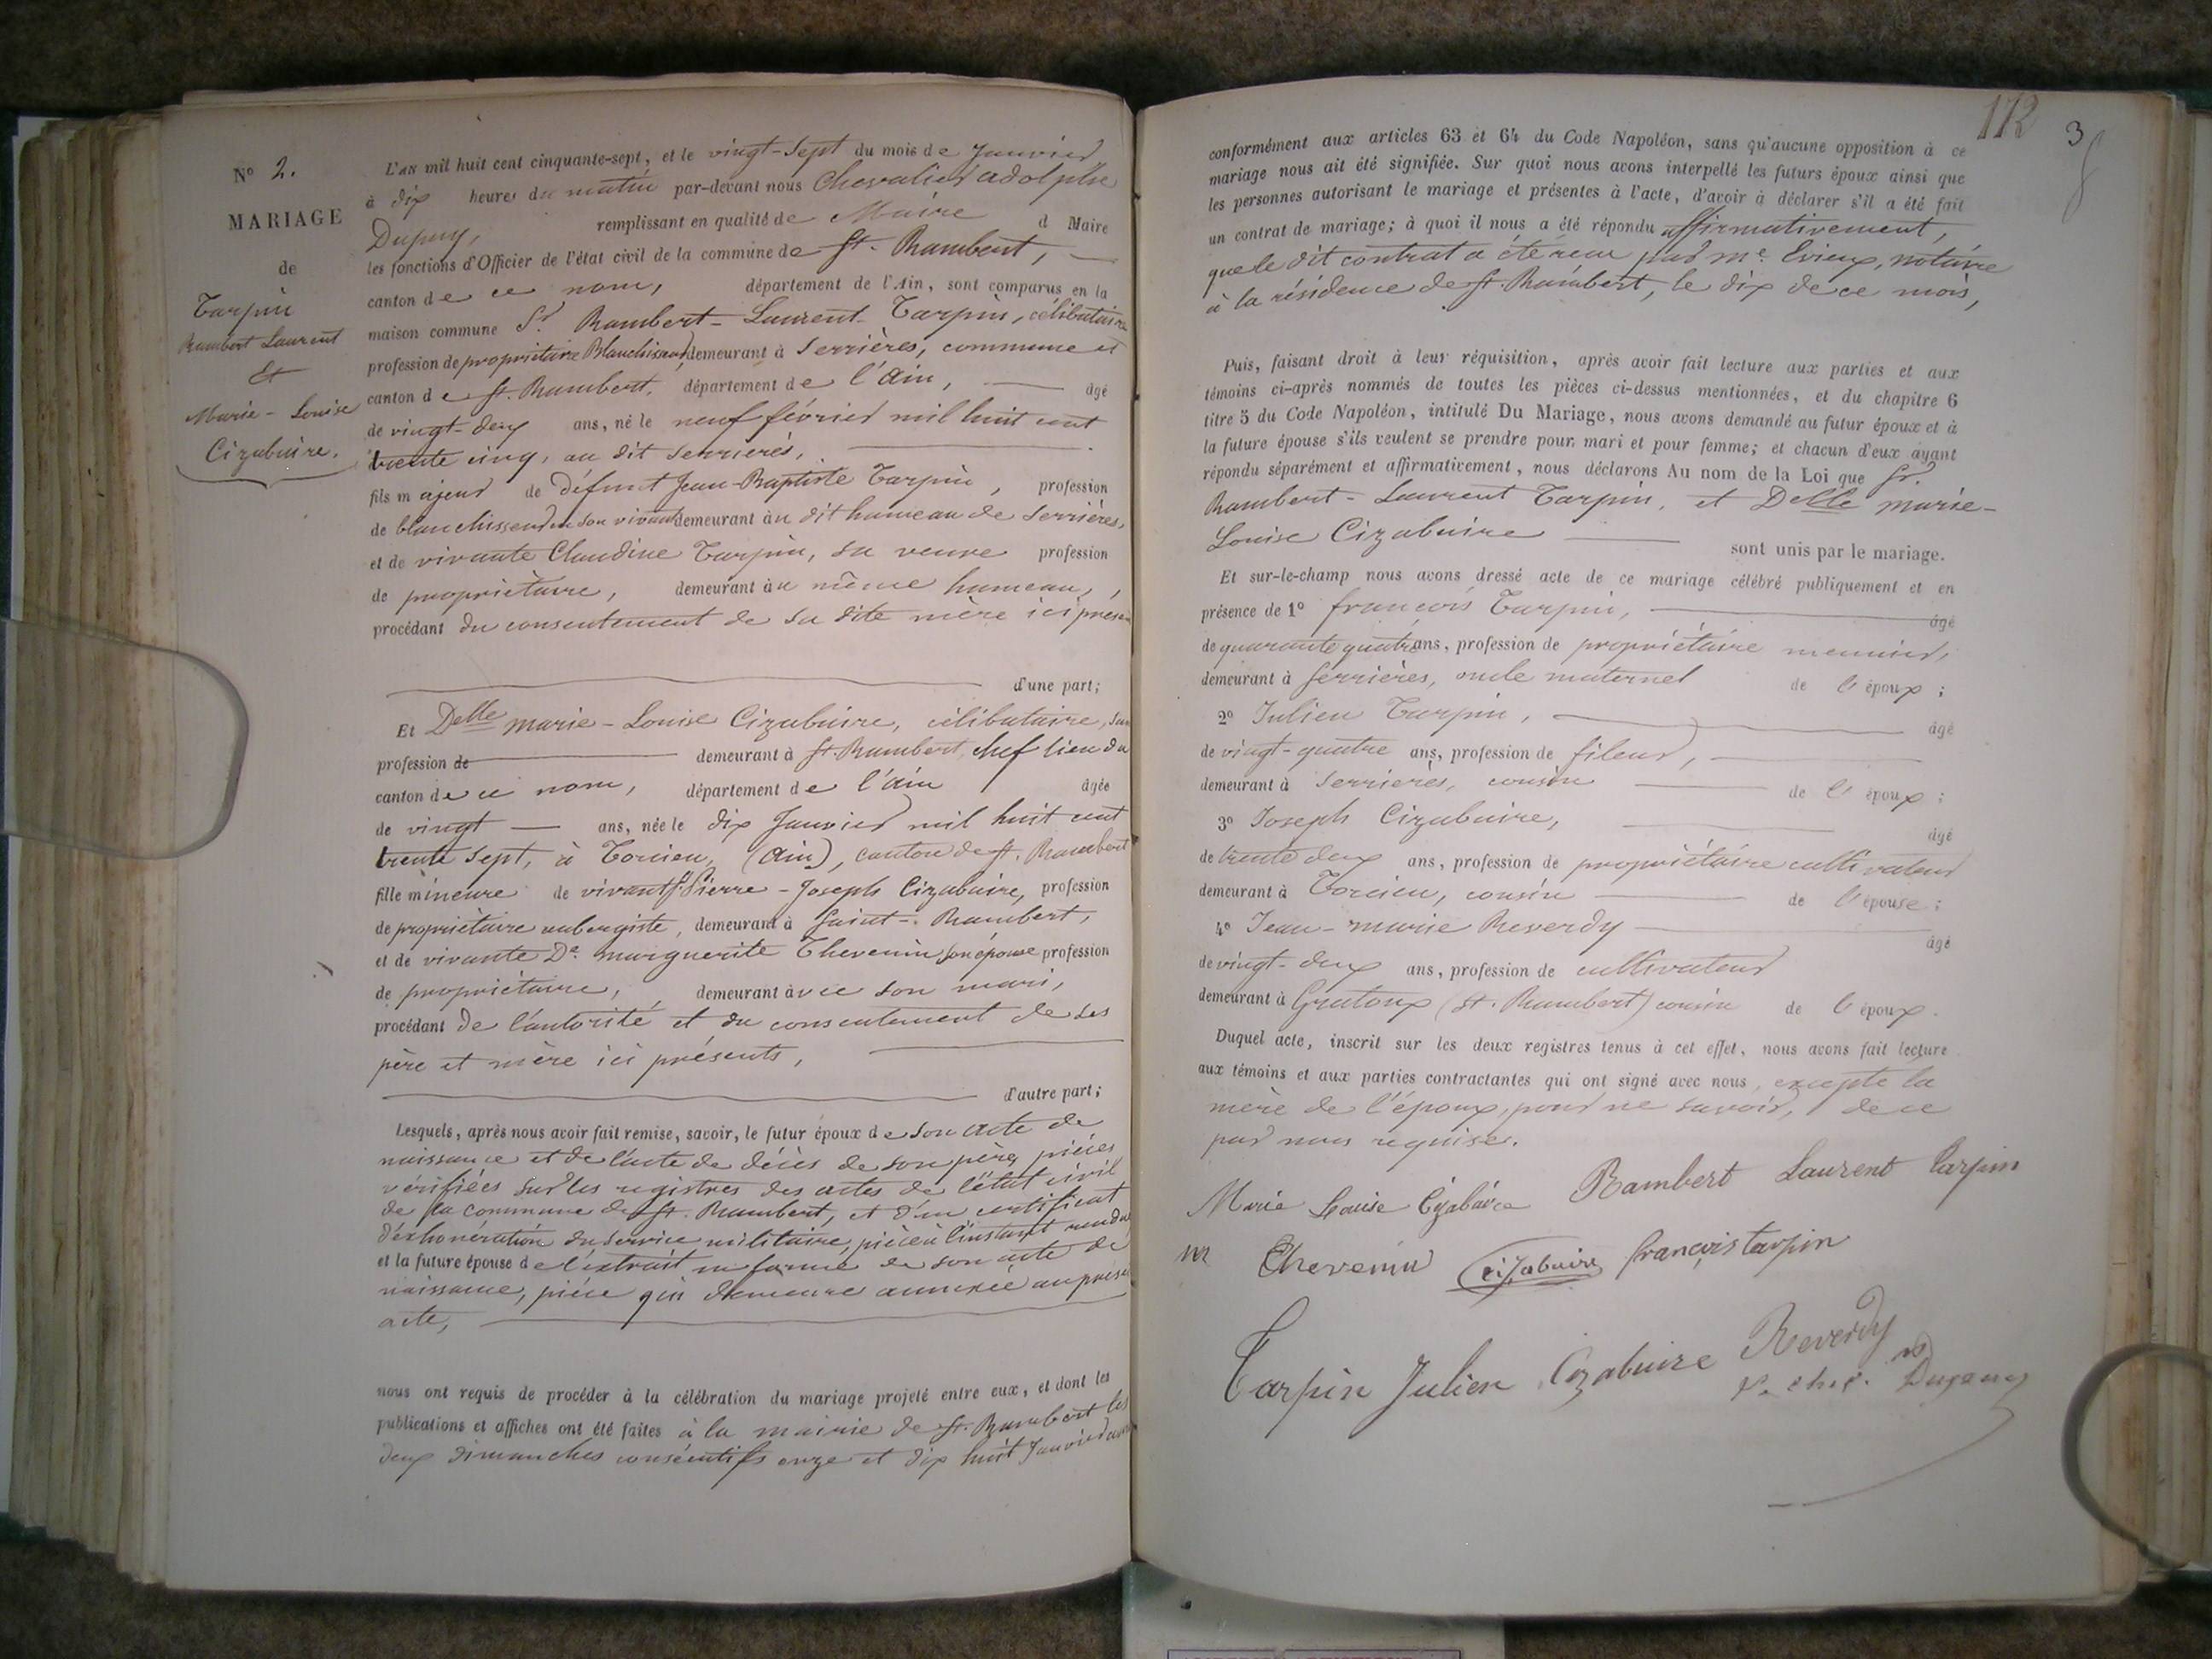 N° 2.
MARIAGE
de
Tarpin
Rambert Laurent
Et
Marie-Louise
Cizabuire.
L'an mil huit cent cinquante-sept, et le vingt-sept du mois de Janvier
à dix heures du matin par-devant nous Chevalier Adolphe
Dupuy, remplissant en qualité de Maire d Maire
les fonctions d'Officier de l'état civil de la commune de St. Rambert,
canton de ce nom, département de l'Ain, sont comparus en la
maison commune Sr. Rambert-Laurent Tarpin, célibataire
profession de propriétaire Blanchisseur demeurant à Serrières, commune et
canton de St. Rambert, département de l'Ain, âgé
de vingt-deux ans, né le neuf février mil huit cent
trente cinq, au dit Serrières,
fils majeur de défunt Jean-Baptiste Tarpin, profession
de blanchisseur de son vivant demeurant au dit hameau de Serrières,
et de vivante Claudine Tarpin, sa veuve profession
de propriétaire, demeurant au même hameau,
procédant du consentement de sa dite mère ici présen
d'une part;
Et Delle Marie-Louise Cizabuire, célibataire, san
profession de demeurant à St. Rambert, chef lieu du
canton de ce nom, département de l'Ain âgée
de vingt ans, née le dix Janvier mil huit cent
trente sept, à Torcieu, (Ain), canton de St. Rambert
fille mineure de vivant Sr. Pierre-Joseph Cizabuire, profession
de propriétaire aubergiste, demeurant à Saint-Rambert,
et de vivante De. Marguerite Thevenin son épouse profession
de propriétaire, demeurant avec son mari,
procédant de l'autorité et du consentement de ses
père et mère ici présents,
d'autre part;
Lesquels, après nous avoir fait remise, savoir, le futur époux de son acte de
naissance et de l'acte de décès de son père, pièces
vérifiées sur les registres des actes de l'état civil
de la commune de St. Rambert, et d'un certificat
d'exhonération du service militaire, pièce à l'instant rendue
et la future épouse de l'extrait en forme de son acte de
naissance, pièce qui demeure annexée au prése
acte,
nous ont requis de procéder à la célébration du mariage projeté entre eux, et dont les
publications et affiches ont été faites à la mairie de St. Rambert les
deux dimanches consécutifs onze et dix huit Janvier
172 3
conformément aux articles 63 et 64 du Code Napoléon, sans qu'aucune opposition à ce
mariage nous ait été signifiée. Sur quoi nous avons interpellé les futurs époux ainsi que
les personnes autorisant le mariage et présentes à l'acte, d'avoir à déclarer s'il a été fait
un contrat de mariage; à quoi il nous a été répondu affirmativement,
que le dit contrat a été reçu par Me. Evieux, notaire
à la résidence de St Rambert, le dix de ce mois,
Puis, faisant droit à leur réquisition, après avoir fait lecture aux parties et aux
témoins ci-après nommés de toutes les pièces ci-dessus mentionnées, et du chapitre 6
titre 5 du Code Napoléon, intitulé Du Mariage, nous avons demandé au futur époux et à
la future épouse s'ils veulent se prendre pour mari et pour femme; et chacun d'eux ayant
répondu séparément et affirmativement, nous déclarons Au nom de la Loi que Sr.
Rambert-Laurent Tarpin, et Delle Marie-
Louise Cizabuire sont unis par le mariage.
Et sur-le-champ nous avons dressé acte de ce mariage célébré publiquement et en
présence de 1° françois Tarpin, âgé
de quarante quatre ans, profession de propriétaire meunier,
demeurant à Serrières, oncle maternel de l'époux;
2° Julien Tarpin, âgé
de vingt-quatre ans, profession de fileur,
demeurant à Serrières, cousin de l'époux;
3° Joseph Cizabuire, âgé
de trente deux ans, profession de propriétaire cultivateur
demeurant à Torcieu, cousin de l'épouse;
4° Jean-Marie Reverdy âgé
de vingt-deux ans, profession de cultivateur
demeurant à Gratoux (St. Rambert) cousin de l'époux.
Duquel acte, inscrit sur les deux registres tenus à cet effet, nous avons fait lecture
aux témoins et aux parties contractantes qui ont signé avec nous, excepté la
mère de l'époux, pour ne savoir, de ce
par nous requise.
Marie Louise Cizabuire Rambert Laurent Tarpin
m Thevenin Cizabuire françois tarpin
Tarpin Julien Cizabuire Reverdy
Dupuy